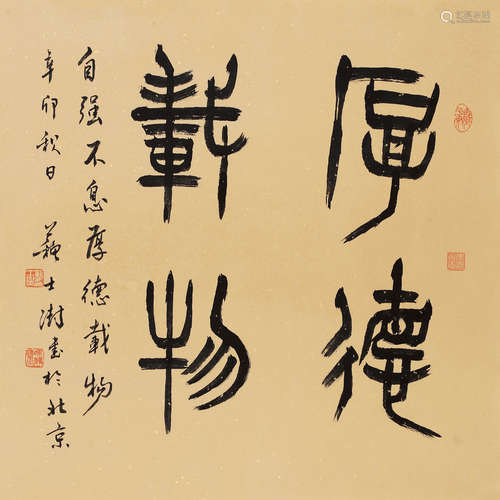 厚德
載物
自强不息厚德載物
辛卯秋日蘇士澍書於北京